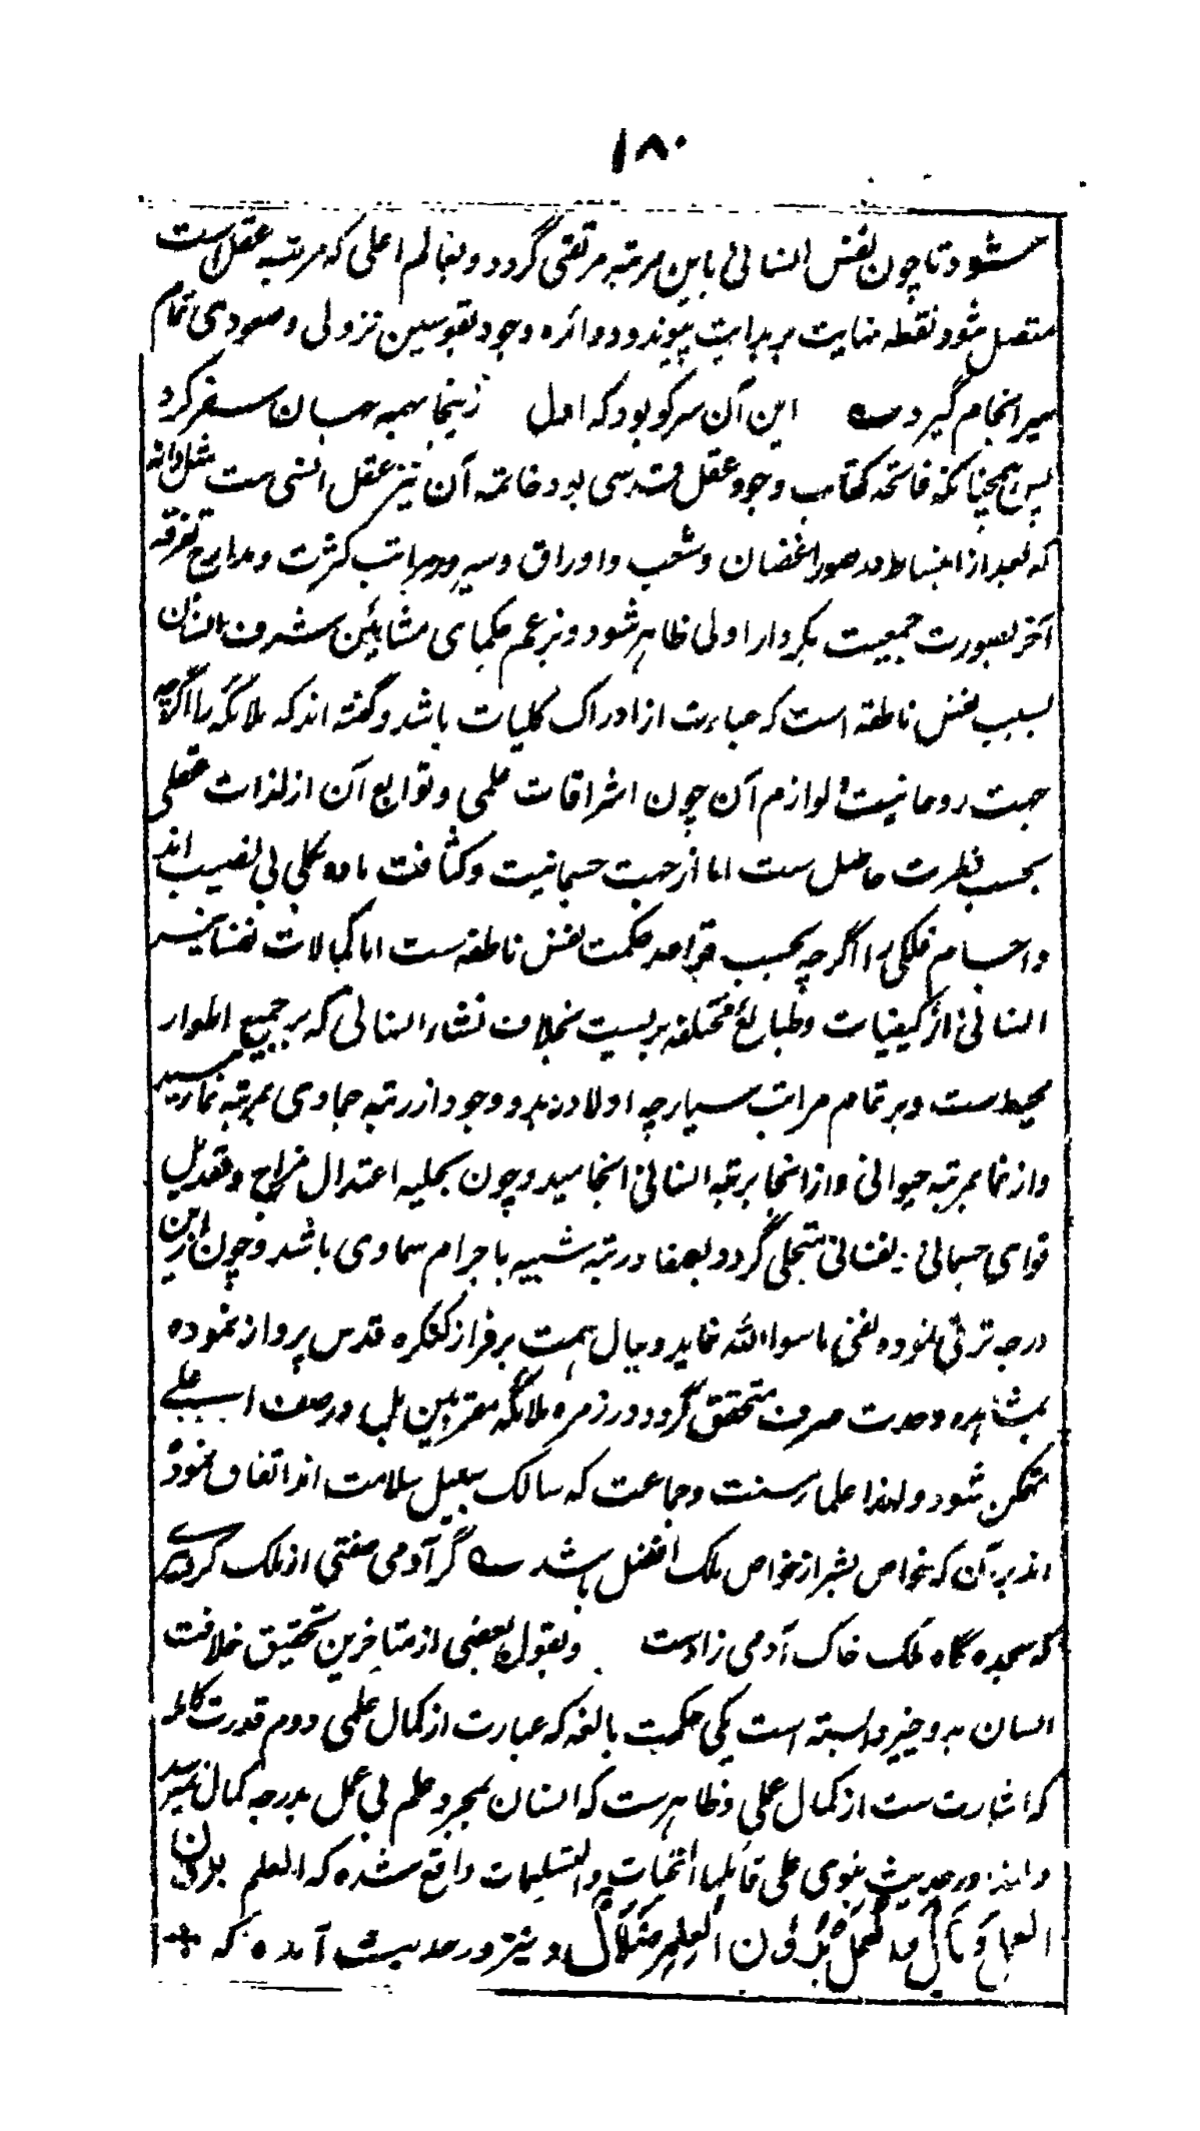 ۱۸۰
شود تا چون نفس انسانی باین مرتبہ مرتقی گردد و بعالم اعلی کہ مرتبہ عقل است
متصل شود نقطہ نہایت بر بدایت پیوندد و دائرہ وجود بقوسین نزولی و صعودی تمام
سرانجام گیرد ؎ این آن سرکو بود کہ اول زینجا بہمہ جہان سفر کرد
پس ہمچنانکہ فاتحہ کتاب وجود عقل قدسی بود خاتمہ آن نیز عقل انسی ست مثل دانہ
کہ بعد از انبساط در صور اغضان و شعب و اوراق و سیر در مراتب کثرت و مدارج تفرقہ
آخر بصورت جمعیت بکردار اولی ظاہر شود و بزعم حکمای مشایئین شرف انسان
بسبب نفس ناطقہ است کہ عبارت از ادراک کلیات باشد و گفتہ اند کہ ملائکہ را اگرچہ
جہت روحانیت و لوازم آن چون اشراقات علمی و توابع آن از لذات عقلی
بحسب فطرت حاصل ست اما از جہت جسمانیت و کثافت مادہ کلی بی نصیب اند
و اجسام فلکی را اگرچہ بحسب قواعد حکمت نفس ناطقہ ست اما کمالات نفسانیہ
انسانی از کیفیات و طبایع مختلفہ بریست بخلاف نشاء انسانی کہ بر جمیع اطوار
محیط ست و بر تمام مراتب سیار چہ اولا در بدو وجود از رتبہ جمادی بمرتبہ نما رسید
و از نما بمرتبہ حیوانی و از انجا برتبہ انسانی انجامید و چون بحلیہ اعتدال مزاج و تعدیل
قوای جسمانی نفسانی متحلی گردد بصفا در رتبہ شبیہ باجرام سماوی باشد و چون ازین
درجہ ترقی نمودہ نفی ماسوا اللہ نماید و ببال ہمت بر فراز کنگرہ قدس پرواز نمودہ
بمشاہدہ وحدت صرف متحقق گردد در زمرہ ملائکہ مقربین بل در صف اعلے
متمکن شود و لہذا علماء سنت و جماعت کہ سالک سبیل سلامت اند اتفاق نمودہ
اند بر آن کہ خواص بشر از خواص ملک افضل باشد ؎ گر آدمی صفتی از ملک گرو
کہ سجدہ گاہ ملک خاک آدمی زادست و بقول بعضی از متاخرین تحقیق خلافت
انسان بدو چیز وابستہ است یکی حکمت بالغہ کہ عبارت از کمال علمی دوم قدرت کاملہ
کہ اشارت ست از کمال عملی و ظاہرست کہ انسان بمجرد علم بی عمل بدرجہ کمال نمیرسد
و لہذا در حدیث نبوی علی قائلہا التحیات والتسلیمات واقع شدہ کہ العلم بدون
العمل وبال والعمل بدون العلم ضلال و نیز در حدیث آمدہ کہ